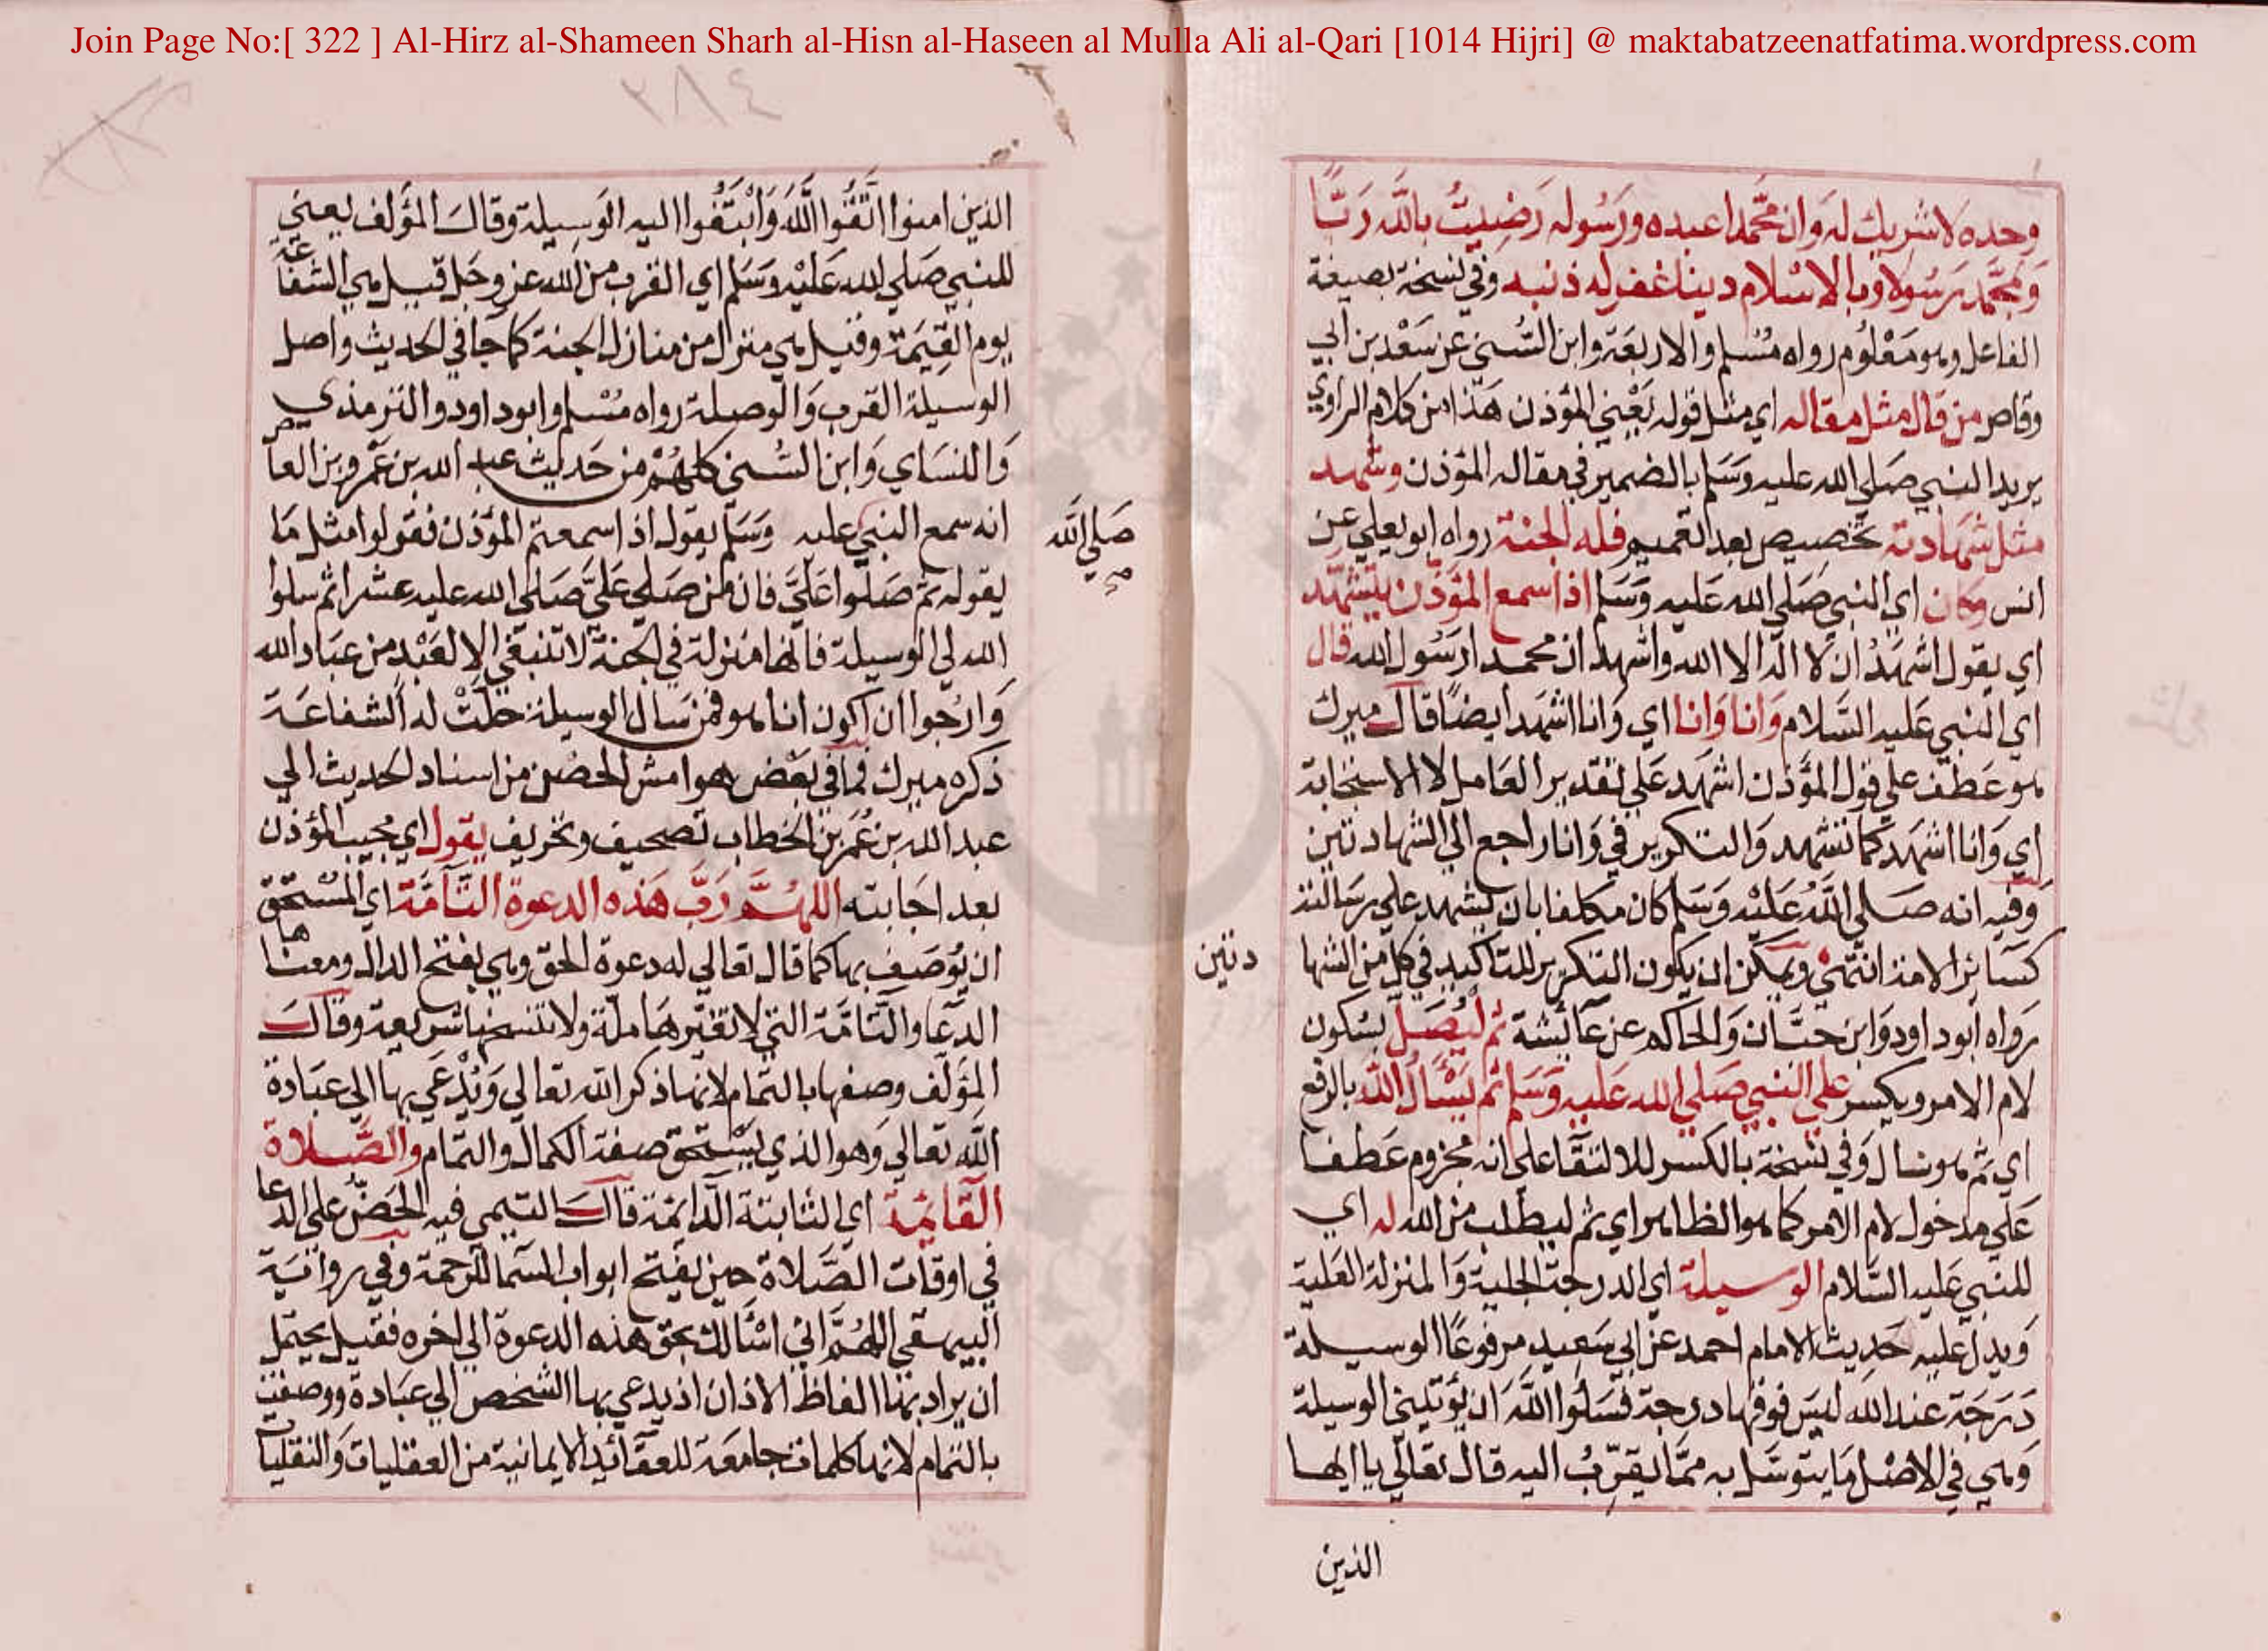 Join Page No:[ 322 ] Al-Hirz al-Shameen Sharh al-Hisn al-Haseen al Mulla Ali al-Qari [1014 Hijri] @ maktabatzeenatfatima.wordpress.com
وحده لا شريك له وان محمدا عبده ورسوله رضيت بالله ربا
وبمحمد رسولا وبالاسلام دينا غفر له ذنبه وفي نسخة بصيغة
الفاعل وهو معلوم رواه مسلم والاربعة وابن السني عن سعد بن ابي
وقاص من قال مثل مقاله اي مثل قوله يعني المؤذن هذا من كلام الراوي
يريد النبي صلي الله عليه وسلم بالضمير في مقاله المؤذن وشهد
مثل شهادته تخصيص بعد التعميم فله الجنة رواه ابو يعلي عن
انس وكان اي النبي صلي الله عليه وسلم اذا سمع المؤذن يتشهد
اي يقول اشهد ان لا اله الا الله واشهد ان محمدا رسول الله قال
اي النبي عليه السلام وانا وانا اي وانا اشهد ايضا قال ميرك
هو عطف علي قول المؤذن اشهد علي تقدير العامل لا الاستجابة
اي وانا اشهد كما تشهد والتكرير في وانا راجع الي الشهادتين
وفيه انه صلي الله عليه وسلم كان مكلفا بان يشهد علي رسالته
كسائر الامة انتهي ويمكن ان يكون التكرير للتاكيد في كل من الشها
دتين
رواه ابو داود وابن حبان والحاكم عن عائشة ثم ليصل بسكون
لام الامر ويكسر علي النبي صلي الله عليه وسلم ثم يسال الله بالرفع
اي ثم هو يسال وفي نسخة بالكسر للالتقا علي انه مجزوم عطفا
علي مدخول لام الامر كما هو الظاهر اي ثم ليطلب من الله له اي
للنبي عليه السلام الوسيلة اي الدرجة الجلية والمنزلة العلية
ويدل عليه حديث الامام احمد عن ابي سعيد مرفوعا الوسيلة
درجة عند الله ليس فوقها درجة فسلوا الله ان يؤتيني الوسيلة
وهي في الاصل ما يتوسل به مما يقرب اليه قال تعالي يا ايها
الذين
٢٨٤
الذين امنوا اتقوا الله وابتغوا اليه الوسيلة وقال المؤلف يعني
للنبي صلي الله عليه وسلم اي القرب من الله عز وجل قيل هي الشفاعة
يوم القيمة وقيل هي منزل من منازل الجنة كما جا في الحديث واصل
الوسيلة القرب والوصيلة رواه مسلم وابو داود والترمذي
والنساي وابن السني كلهم من حديث عبد الله بن عمرو بن العاص
انه سمع النبي عليه وسلم يقول اذا سمعتم المؤذن فقولوا مثل ما
صلي الله
صح
يقول ثم صلوا علي فان من صلي علي صلي الله عليه عشرا ثم سلوا
الله لي الوسيلة فانها منزلة في الجنة لا تنبغي الا لعبد من عباد الله
وارجوا ان اكون انا هو فمن سال الوسيلة حلت له الشفاعة
ذكره ميرك فما في بعض هوامش الحصن من اسناد الحديث الي
عبد الله بن عمر بن الخطاب تصحيف وتحريف يقول اي مجيب المؤذن
بعد اجابته اللهم رب هذه الدعوة التامة اي المستحق
ان يوصف بها كما قال تعالي له دعوة الحق وهي بفتح الدال ومعناها
الدعا والتامة التي لا تغيرها ملة ولا تنسخها شريعة وقال
المؤلف وصفها بالتمام لانها ذكر الله تعالي ويدعي بها الي عبادة
الله تعالي وهو الذي يستحق صفة الكمال والتمام والصلاة
القائمة اي الثابتة الدائمة قال التيمي فيه الحض علي الدعا
في اوقات الصلاة حين يفتح ابواب السما للرحمة وفي رواية
البيهقي اللهم اني اسئالك بحق هذه الدعوة الي اخره فقيل يحتمل
ان يراد بها الفاظ الاذان اذ يدعي بها الشخص الي عبادة ووصفت
بالتمام لانها كلمات جامعة للعقائد الايمانية من العقليات والنقليات